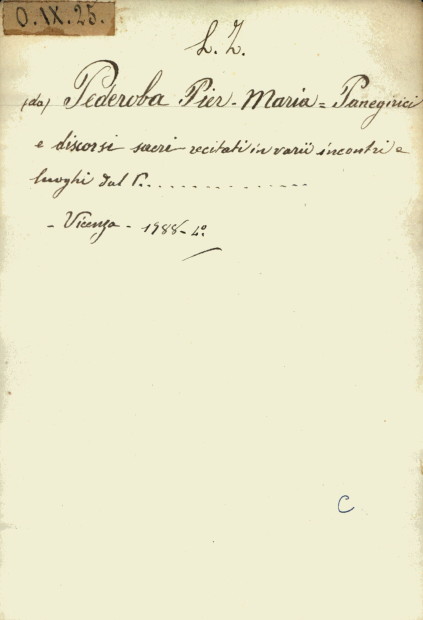 O.IX.25.
L. Z.
(da) Pederoba Pier-Maria = Panegirici
e discorsi sacri recitati in varii incontri e
luoghi dal P. . . . . . . . . . . . . . .
- Vicenza - 1788 - 4º
C